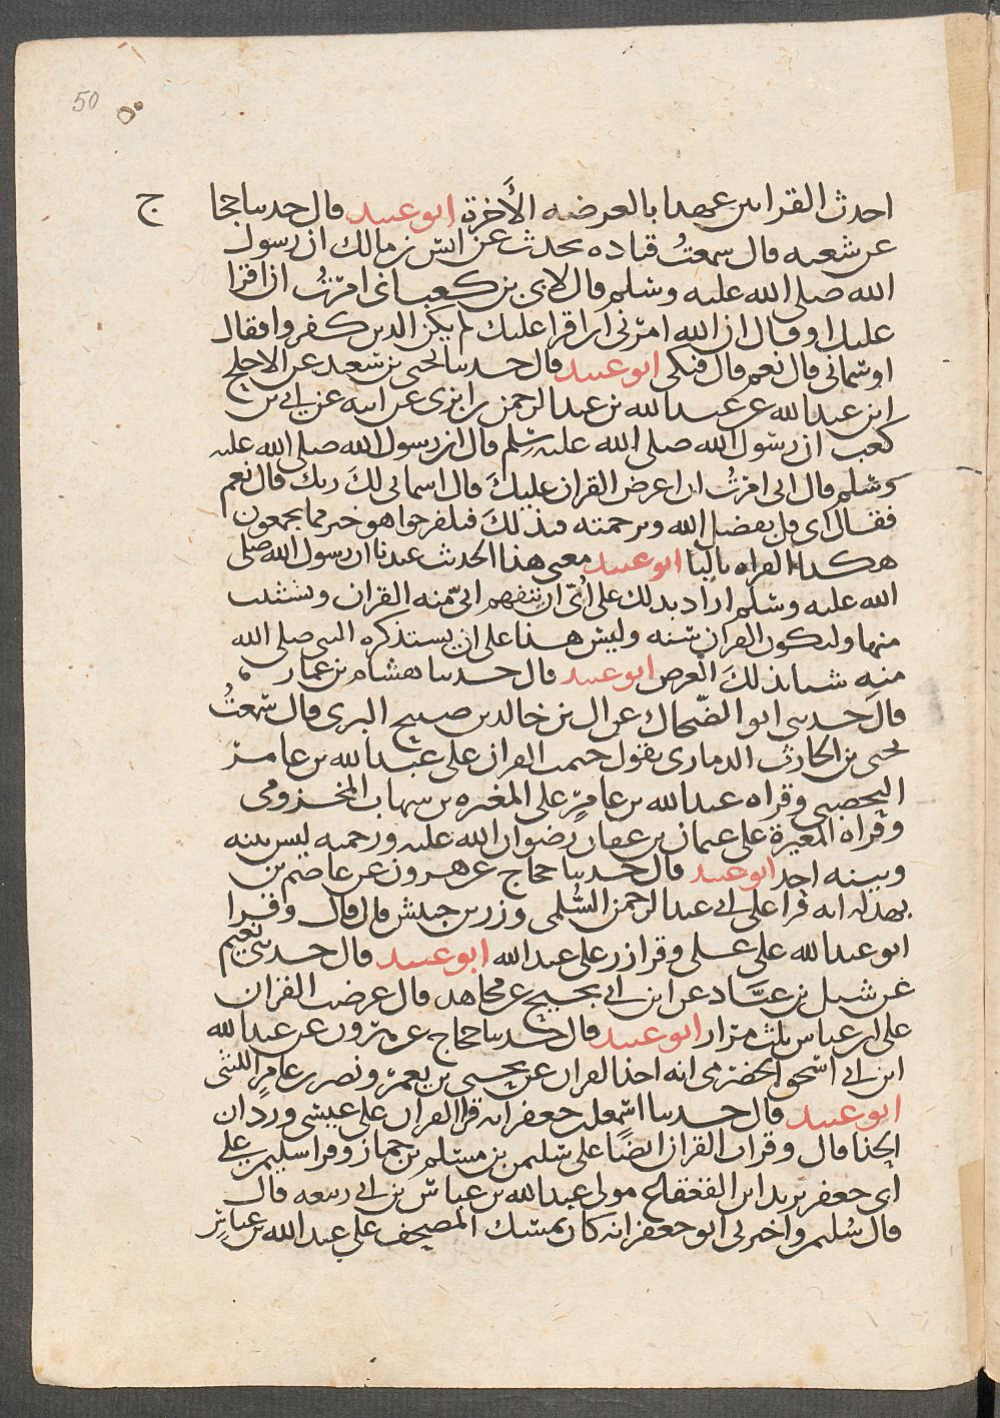 50
احدث القراءتين عهدا بالعرضة الأخرة ابو عبيد قال حدثنا حجا ج
عن شعبة قال سمعتُ قتادة يحدث عن انس بن مالك ان رسول
الله صلى الله عليه وسلم قال لابي بن كعب انى امرتُ ان اقرا
عليك او قال ان الله امرنى ان اقرا عليك لم يكن الذين كفروا فقال
اوسمانى قال نعم قال فبكى ابو عبيد قال حدثنا يحيى بن سعيد عن الاجلح
ابن عبد الله عن عبد الله بن عبد الرحمن بن ابزى عن ابيه عن ابي بن
كعب ان رسول الله صلى الله عليه وسلم قال ان رسول الله صلى الله عليه
وسلم قال انى امرتُ ان اعرض القران عليكَ قال اسمانى لكَ ربك قال نعم
فقال ابى قل بفضل الله وبرحمته فبذلكَ فلتفرحوا هو خير مما تجمعون
هكذا القراه بالتا ابو عبيد معنى هذا الحديث عندنا ان رسول الله صلى
الله عليه وسلم اراد بذلك على اُبىّ ان يتفهم ابىّ منه القران ويتثبت
منها وليكون القران سنه وليس هذا على ان يستذكره النبى صلى الله
منه شيا بذلكَ العرض ابو عبيد قال حدثنا هشام بن عمار
قال حدثنى ابو الضحاك عراك بن خالد بن صبيح المرى قال سمعتُ
يحيى بن الحارث الذمارى يقول ختمت القران على عبد الله بن عامر
اليحصبى وقراه عبد الله بن عامرٍ على المغيره بن شهاب المخزومى
وقراه المغيرة على عثمان بن عفان رضوان الله عليه ورحمته ليس بينه
وبينه احد ابو عبيد قال حدثنا حجاج عن هرون عن عاصم بن
بهدله انه قرا على ابى عبد الرحمن السُّلمى وزر بن حبيش قال قال وقرا
ابو عبد الله على على وقرا زر على عبد الله ابو عبيد قال حدثنى نعيم
عن شبل بن عبَّاد عن ابن ابى نجيح عن مجاهد قال عرضت القران
على ابن عباس ثلث مرّار ابو عبيد قال حدثنا حجاج عن هرون عن عبد الله
ابن ابى اسحق الحضرمى انه اخذ القران عن يحيى بن يعمرَ ونصر بن عامرٍ الليثى
ابو عبيد قال حدثنا اسمعيل بن جعفر انه قرا القران على عيسى وردان
الحذا قال وقرات القران ايضًا على سليمن بن مسلم بن جماز وقرا سليمن على
ابى جعفر يزيد ابن القعقاع مولى عبد الله بن عياش بن ابى ربيعه قال
قال سُليمن واخبرنى ابو جعفر انه كان يمسك المصحف على عبد الله بن عياشٍ